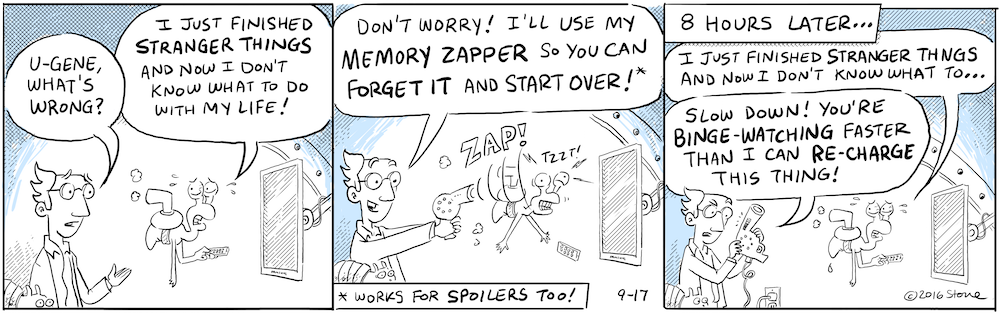 U-GENE,
WHAT'S
WRONG?
I JUST FINISHED
STRANGER THINGS
AND NOW I DON'T
KNOW WHAT TO DO
WITH MY LIFE!
DON'T WORRY! I'LL USE MY
MEMORY ZAPPER SO YOU CAN
FORGET IT AND START OVER!*
ZAP!
TZZT!
* WORKS FOR SPOILERS TOO!
9-17
8 HOURS LATER...
I JUST FINISHED STRANGER THINGS
AND NOW I DON'T KNOW WHAT TO...
SLOW DOWN! YOU'RE
BINGE-WATCHING FASTER
THAN I CAN RE-CHARGE
THIS THING!
©2016 Stone